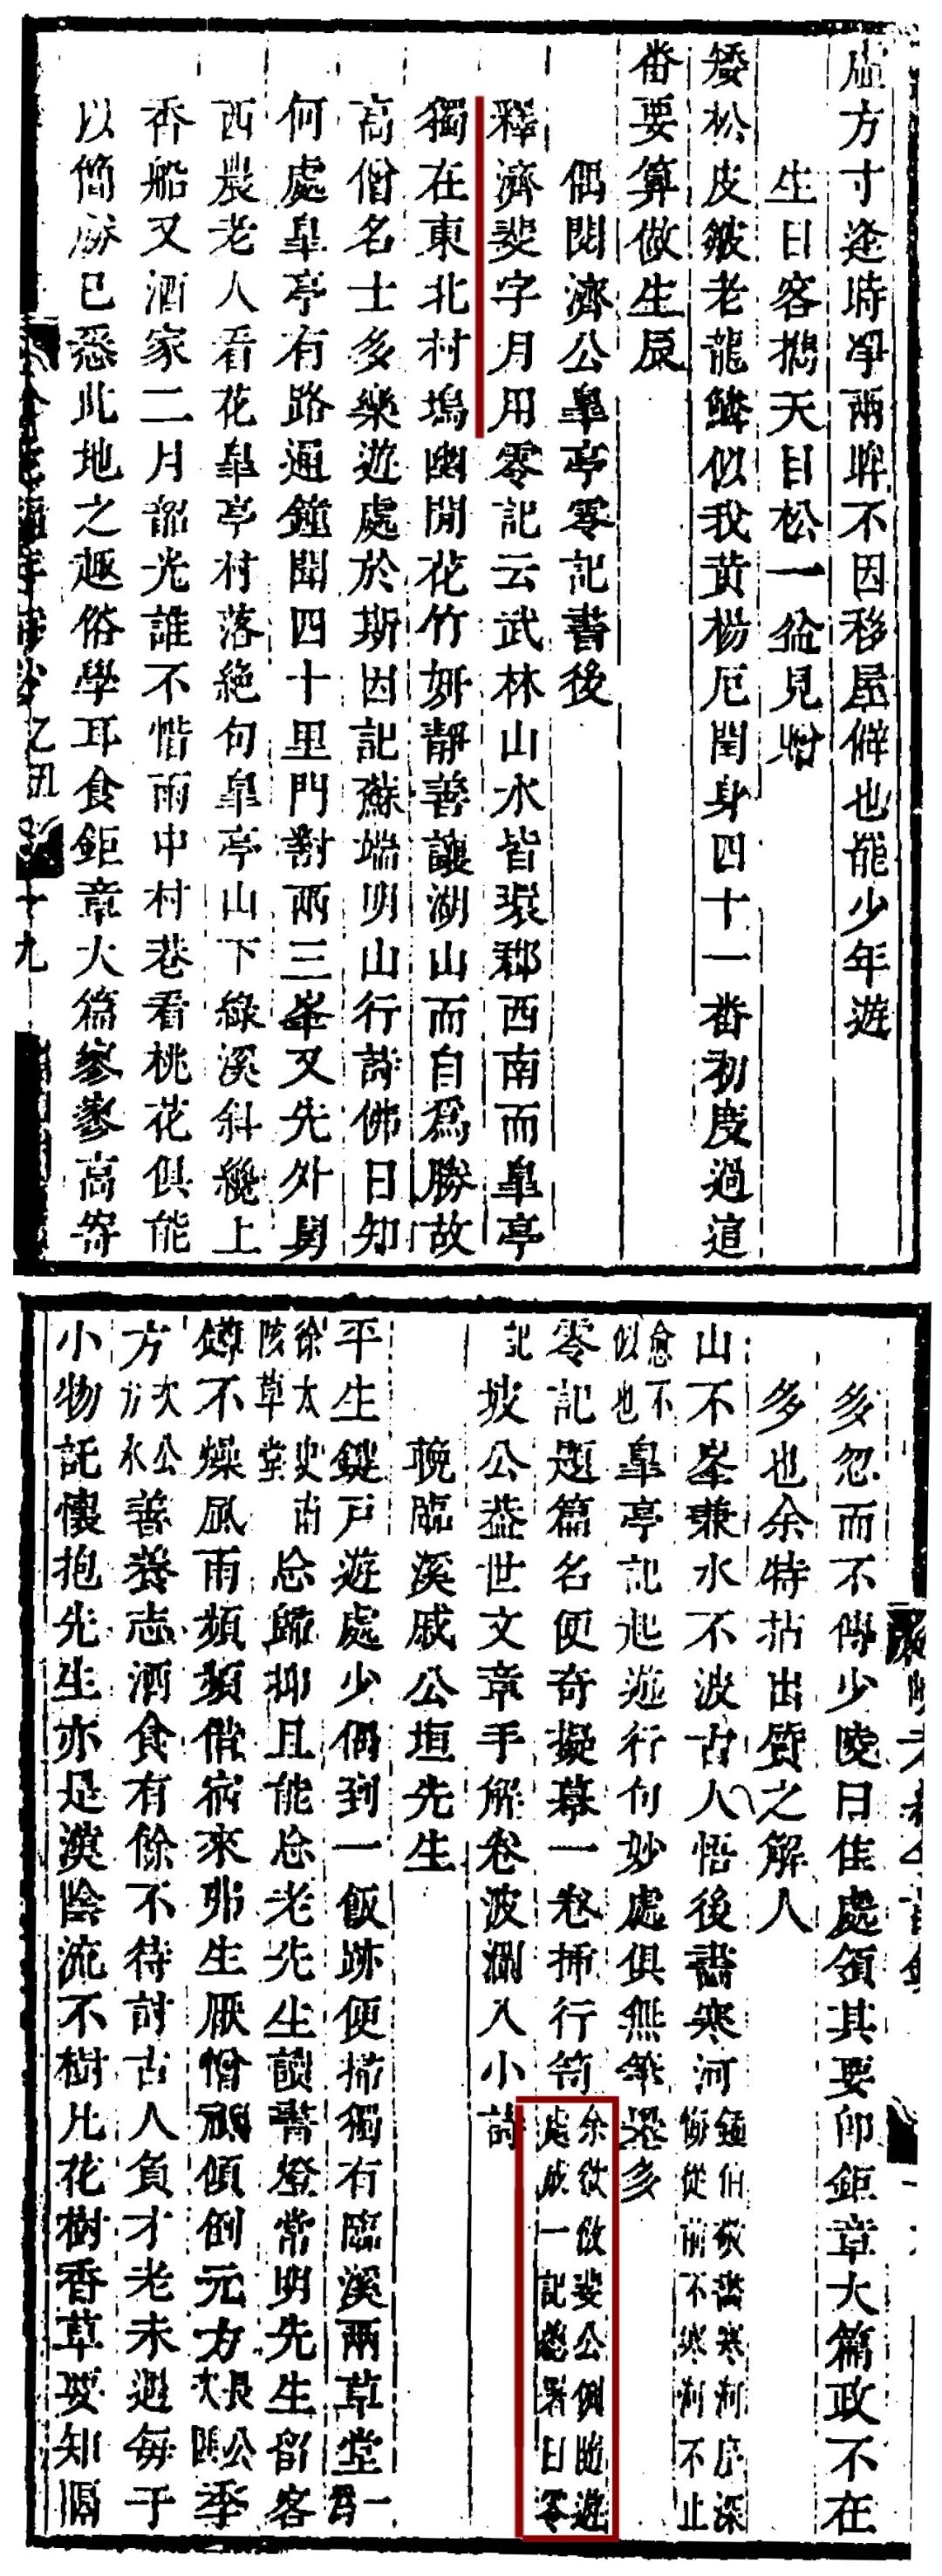 方寸逢時淨兩眸不因移屋僻也能少年遊
生日客攜天目松一盆見贈
矮松皮皴老龍鱗似我黃楊厄閏身四十一番初度過這
番要算做生辰
偶閱濟公臯亭零記書後
釋濟斐字月用零記云武林山水皆聚郡西南而臯亭
獨在東北村塢幽閒花竹妍靜善讓湖山而自爲勝故
高僧名士多樂遊處於斯因記蘇端明山行詩佛日知
何處臯亭有路通鐘聞四十里門對兩三峯又先外舅
西農老人看花臯亭村落絶句臯亭山下綠溪斜纔上
香船又酒家二月韶光誰不惜雨中村巷看桃花俱能
以簡勝已悉此地之趣俗學耳食鉅章大篇寥寥高寄
多忽而不傳少陵曰佳處領其要卽鉅章大篇政不在
多也余特拈出質之解人
山不峯兼水不波古人悟後語寒河鍾伯敬書寒河序深
衡從前不寒河不止
愈不
似也臯亭記起遊行句妙處俱無筆墨多
零記題篇名便奇擬摹一卷揷行笥余從倣斐公例隨遊
處成一記總署曰零
記坡公蓋世文章手解卷波瀾入小詩
晚臨溪戚公垣先生
平生鍵戸遊處少偶到一飯跡便掃獨有臨溪兩草堂一爲
徐太史南
陔草堂忘歸抑且能忘老先生讀書燈常明先生留客
罇不燥風雨頻頻借宿來那生厭憎祇傾倒元方長公
次歐季
方次公
方水善養志酒食有餘不待討古人負才老未遇每于
小物託懷抱先生亦是漢陰流不樹凡花樹香草要知灌